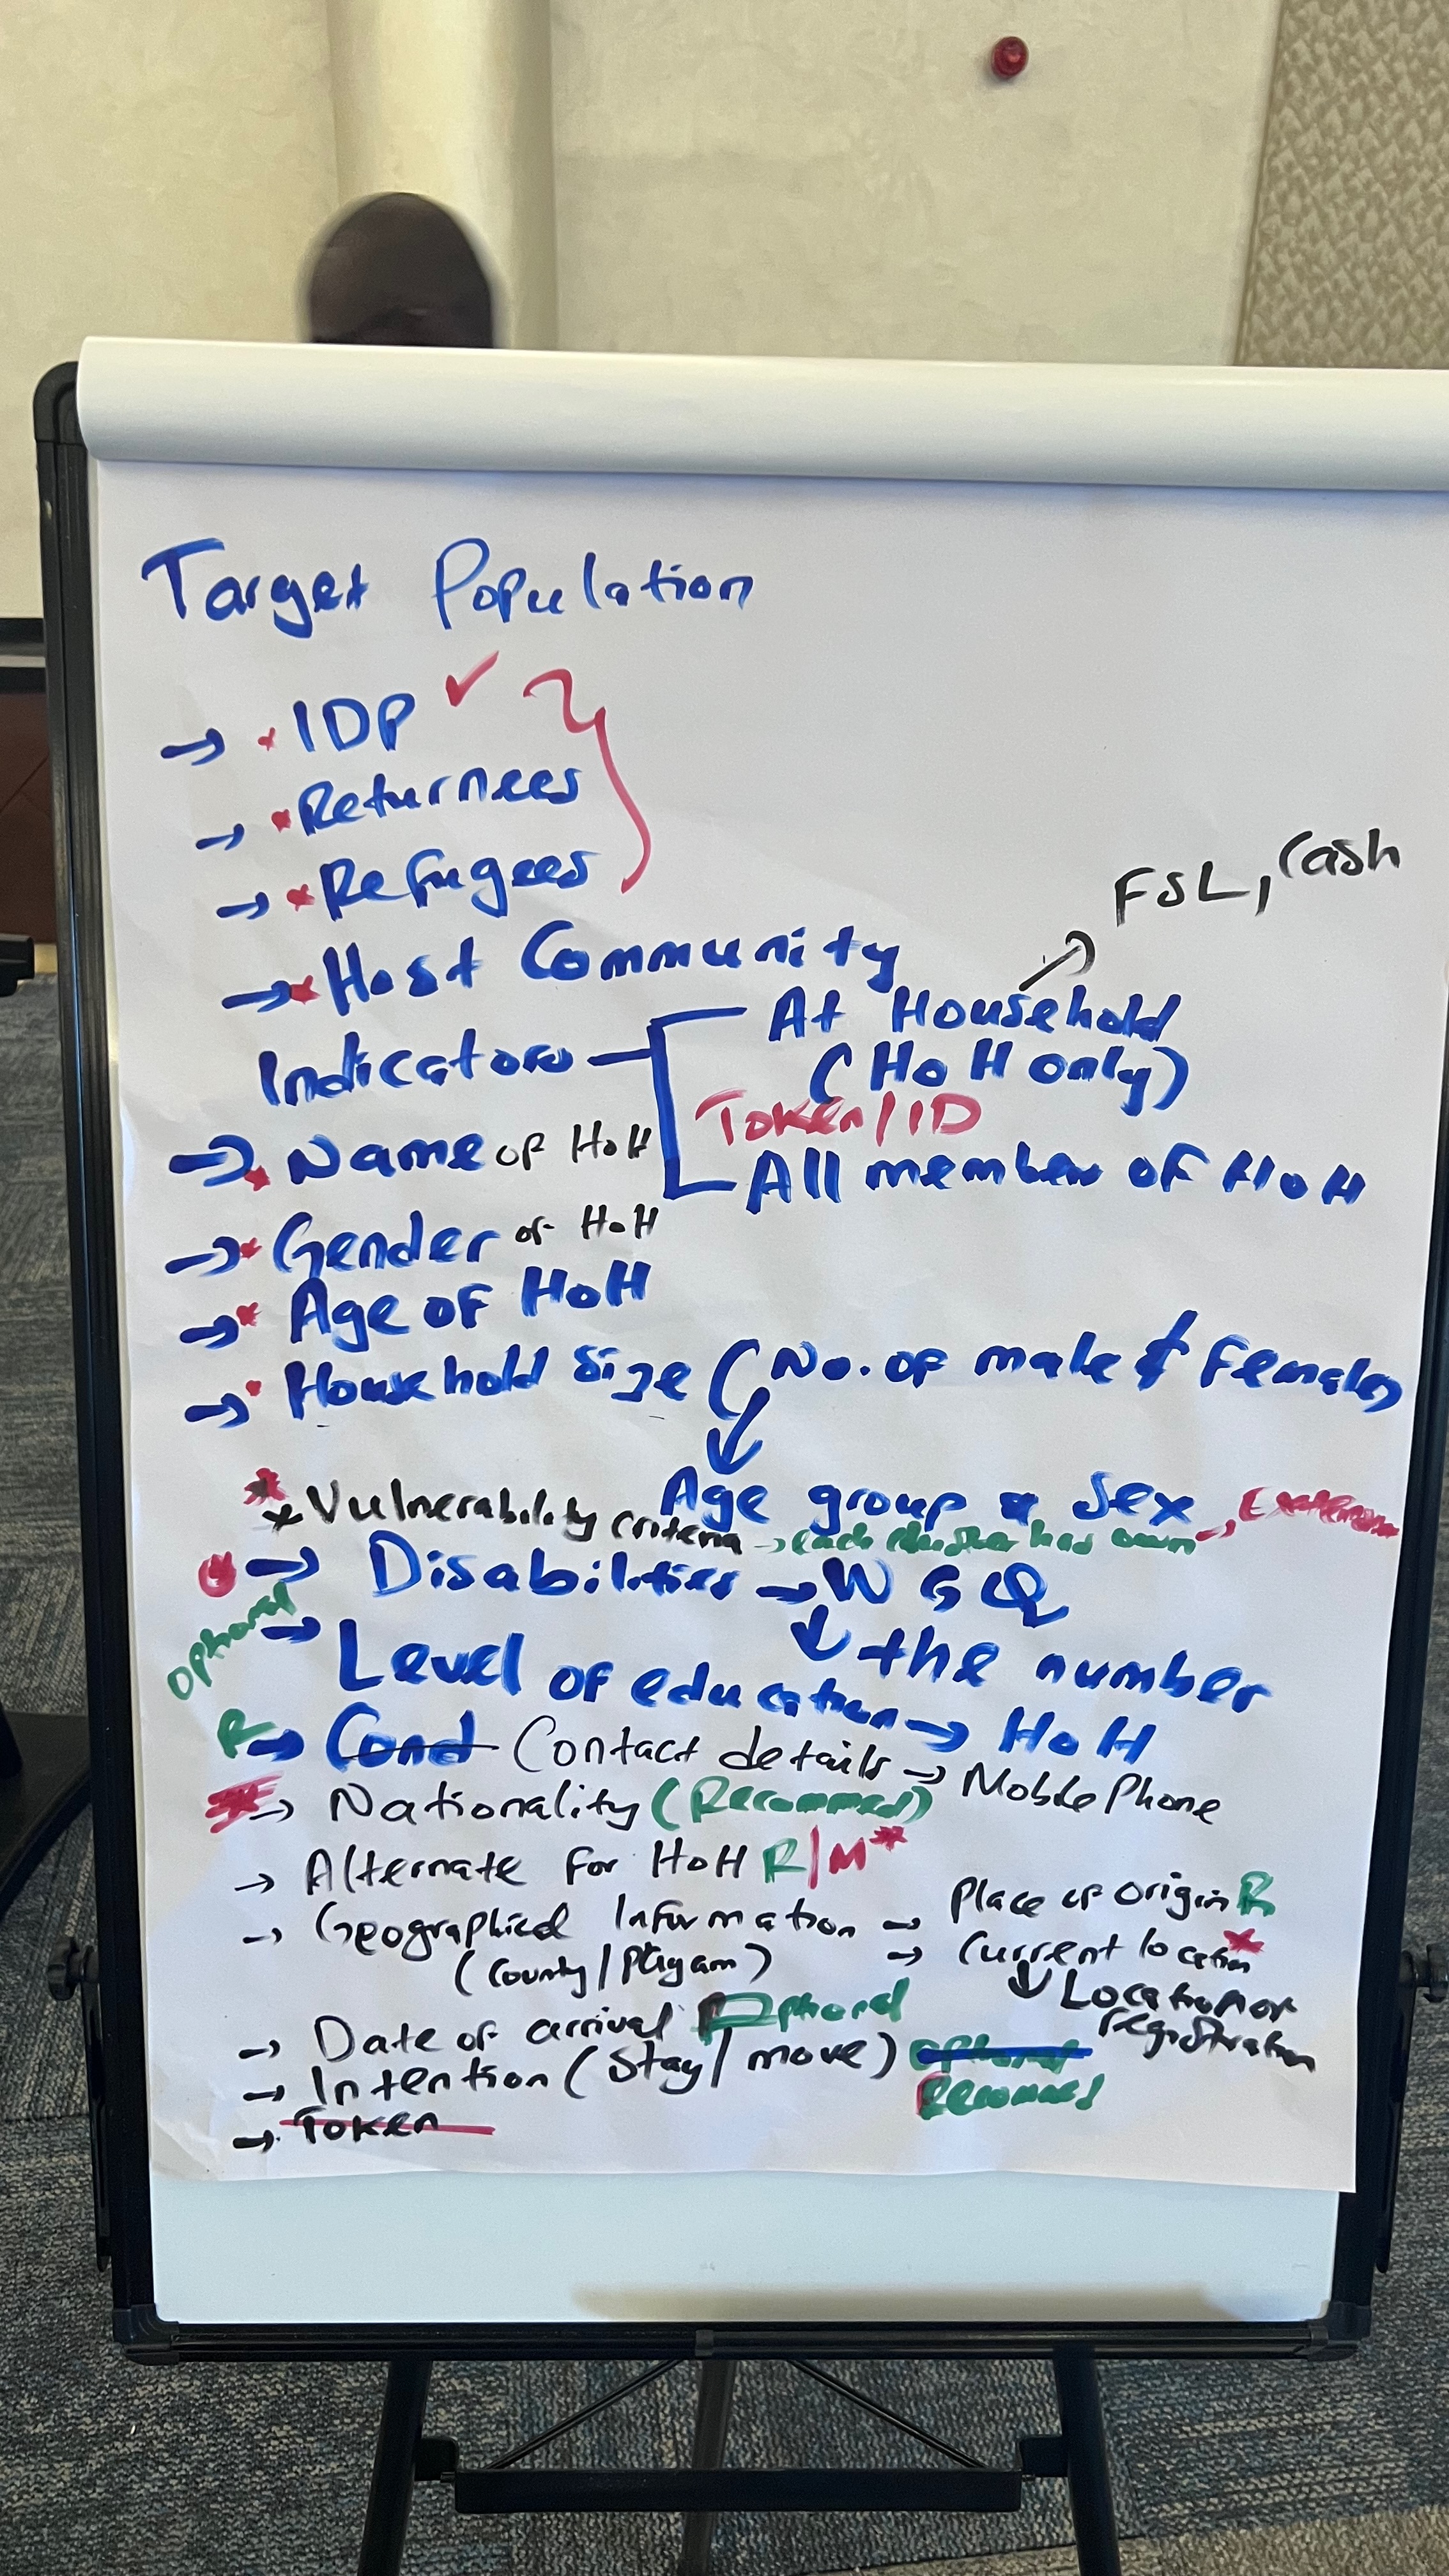 Target Population
→ * IDP ✓
→ * Returnees
→ * Refugees
→ * Host Community
FSL, Cash
Indicators
At Household
(HoH only)
Token/ID
All member of HoH
→ * Name of HoH
→ * Gender of HoH
→ * Age of HoH
→ * Household Size (No. of male & Females
Age group & Sex
* Vulnerability criteria → each cluster has own →
→ Disabilities → WGQ
↓ the number
Optional → Level of education → HoH
R → Cond Contact details → Mobile Phone
* → Nationality (Recommed)
→ Alternate For HoH R/M*
→ Geographical Information → Place of origin R
(County/Payam) → Current location *
↓ Location of registration
→ Date of arrival Optional
→ Intention (Stay/move) Optional
Recommed
→ Token